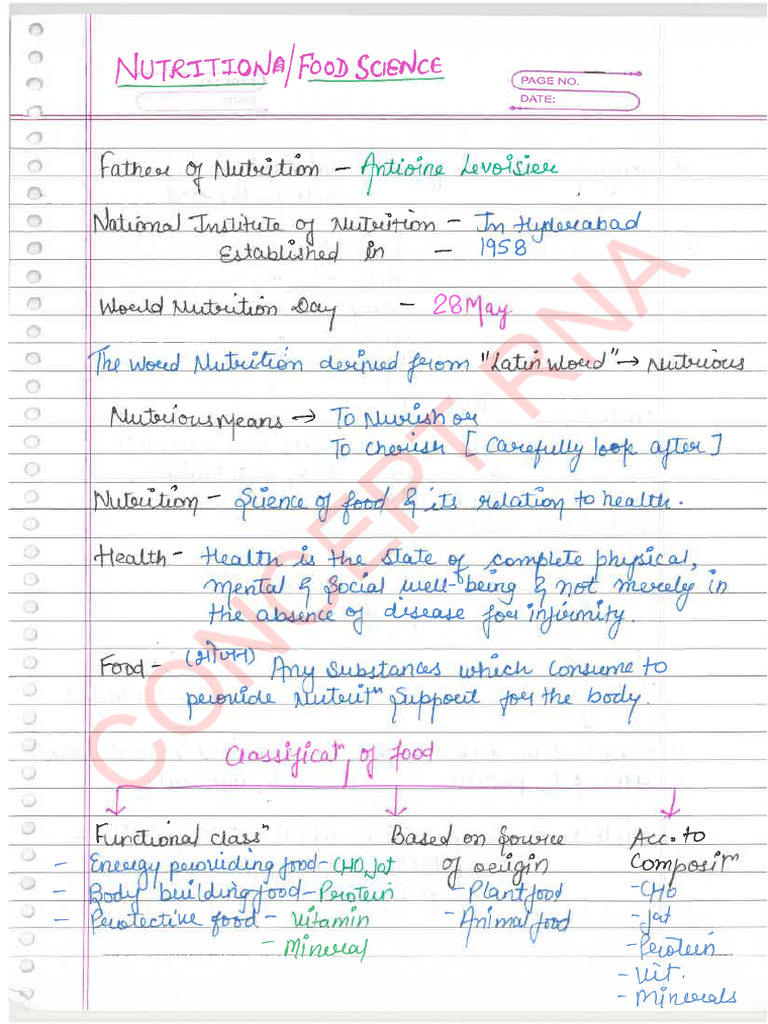 NUTRITIONA/FOOD SCIENCE
PAGE NO.
DATE:
Father of Nutrition - Antioine Levoisier
National Institute of Nutrition - In Hyderabad
Established in - 1958
World Nutrition Day - 28 May
The word Nutrition derived from "Latin word" → Nutrious
Nutrious Means → To Nurish or
To cherish [Carefully look after]
Nutrition - Science of food & its relation to health.
Health - Health is the state of complete physical,
mental & social well-being & not merely in
the absence of disease for infirmity.
Food - (भोजन) Any substances which consume to
provide Nutritn support for the body.
Classificatn of food
Functional classn
Based on source
Acc. to
- Energy providing food - CHO, fat
of origin
Compositn
- Body building food - Protein
- Plant food
- CHO
- Protective food - Vitamin
- Animal food
- fat
- Mineral
- Protein
- Vit.
- Minerals
CONCEPT RNA